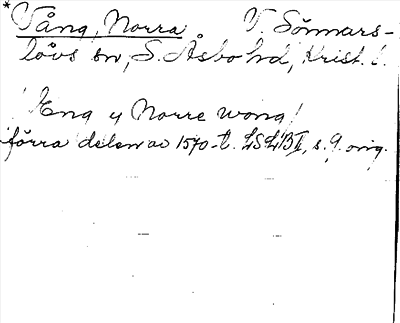 *Vång, Norra V. Sönnars-
lövs sn, S. Åsbo hd, Krist. l.
"Eng y Norre wong"
förra delen av 1570-t. LSLB II, s. 9. orig.